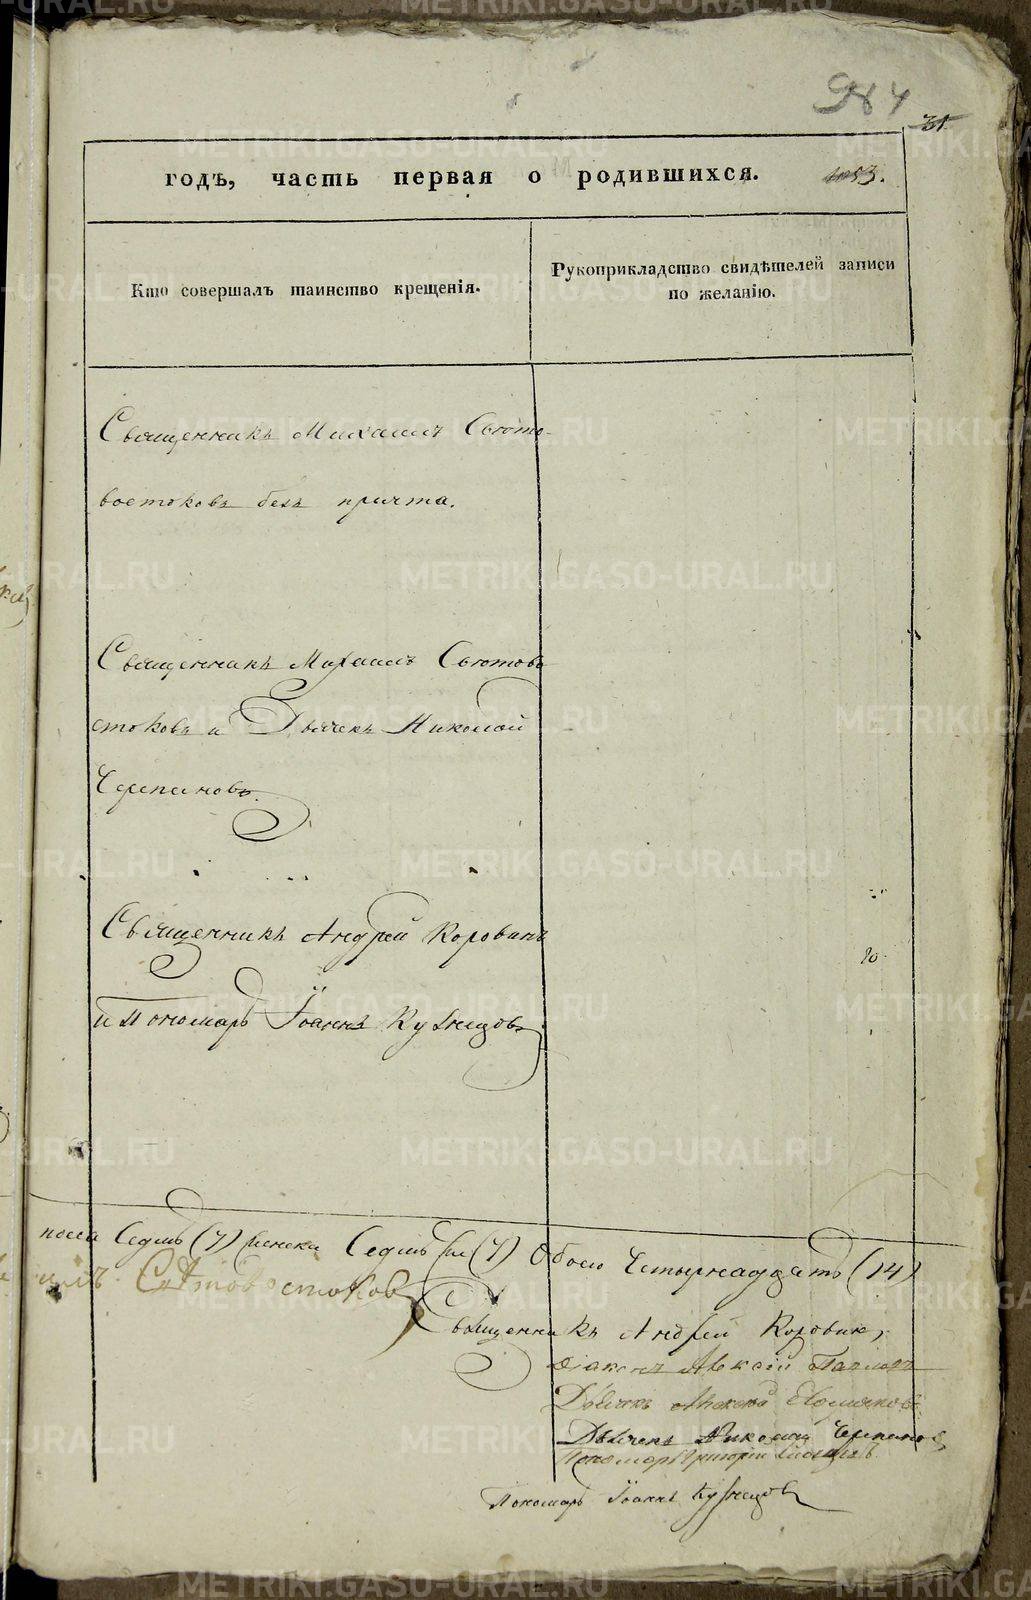 № 4
31
годъ, часть первая о родившихся. 1053.
Кто совершалъ таинство крещенія.
Рукоприкладство свидѣтелей записи
по желанію.
Священникъ Михаилъ Свѣто-
востоковъ безъ причта.
Священникъ Михаилъ Свѣтово
стоковъ и Дьячекъ Николай
Черепановъ.
Священникъ Андрей Коровинъ
и Пономарь Іоаннъ Кузнецовъ
пола Седмь (7) женска Седмь (7) Обоего Четырнадцать (14)
Свѣтовостоковъ
Священникъ Андрей Коровинъ,
Діаконъ Алексій
Дьячекъ
Дьячекъ Николай Черепановъ
Пономарь Григорій
Пономарь Іоаннъ Кузнецовъ
METRIKI.GASO-URAL.RU